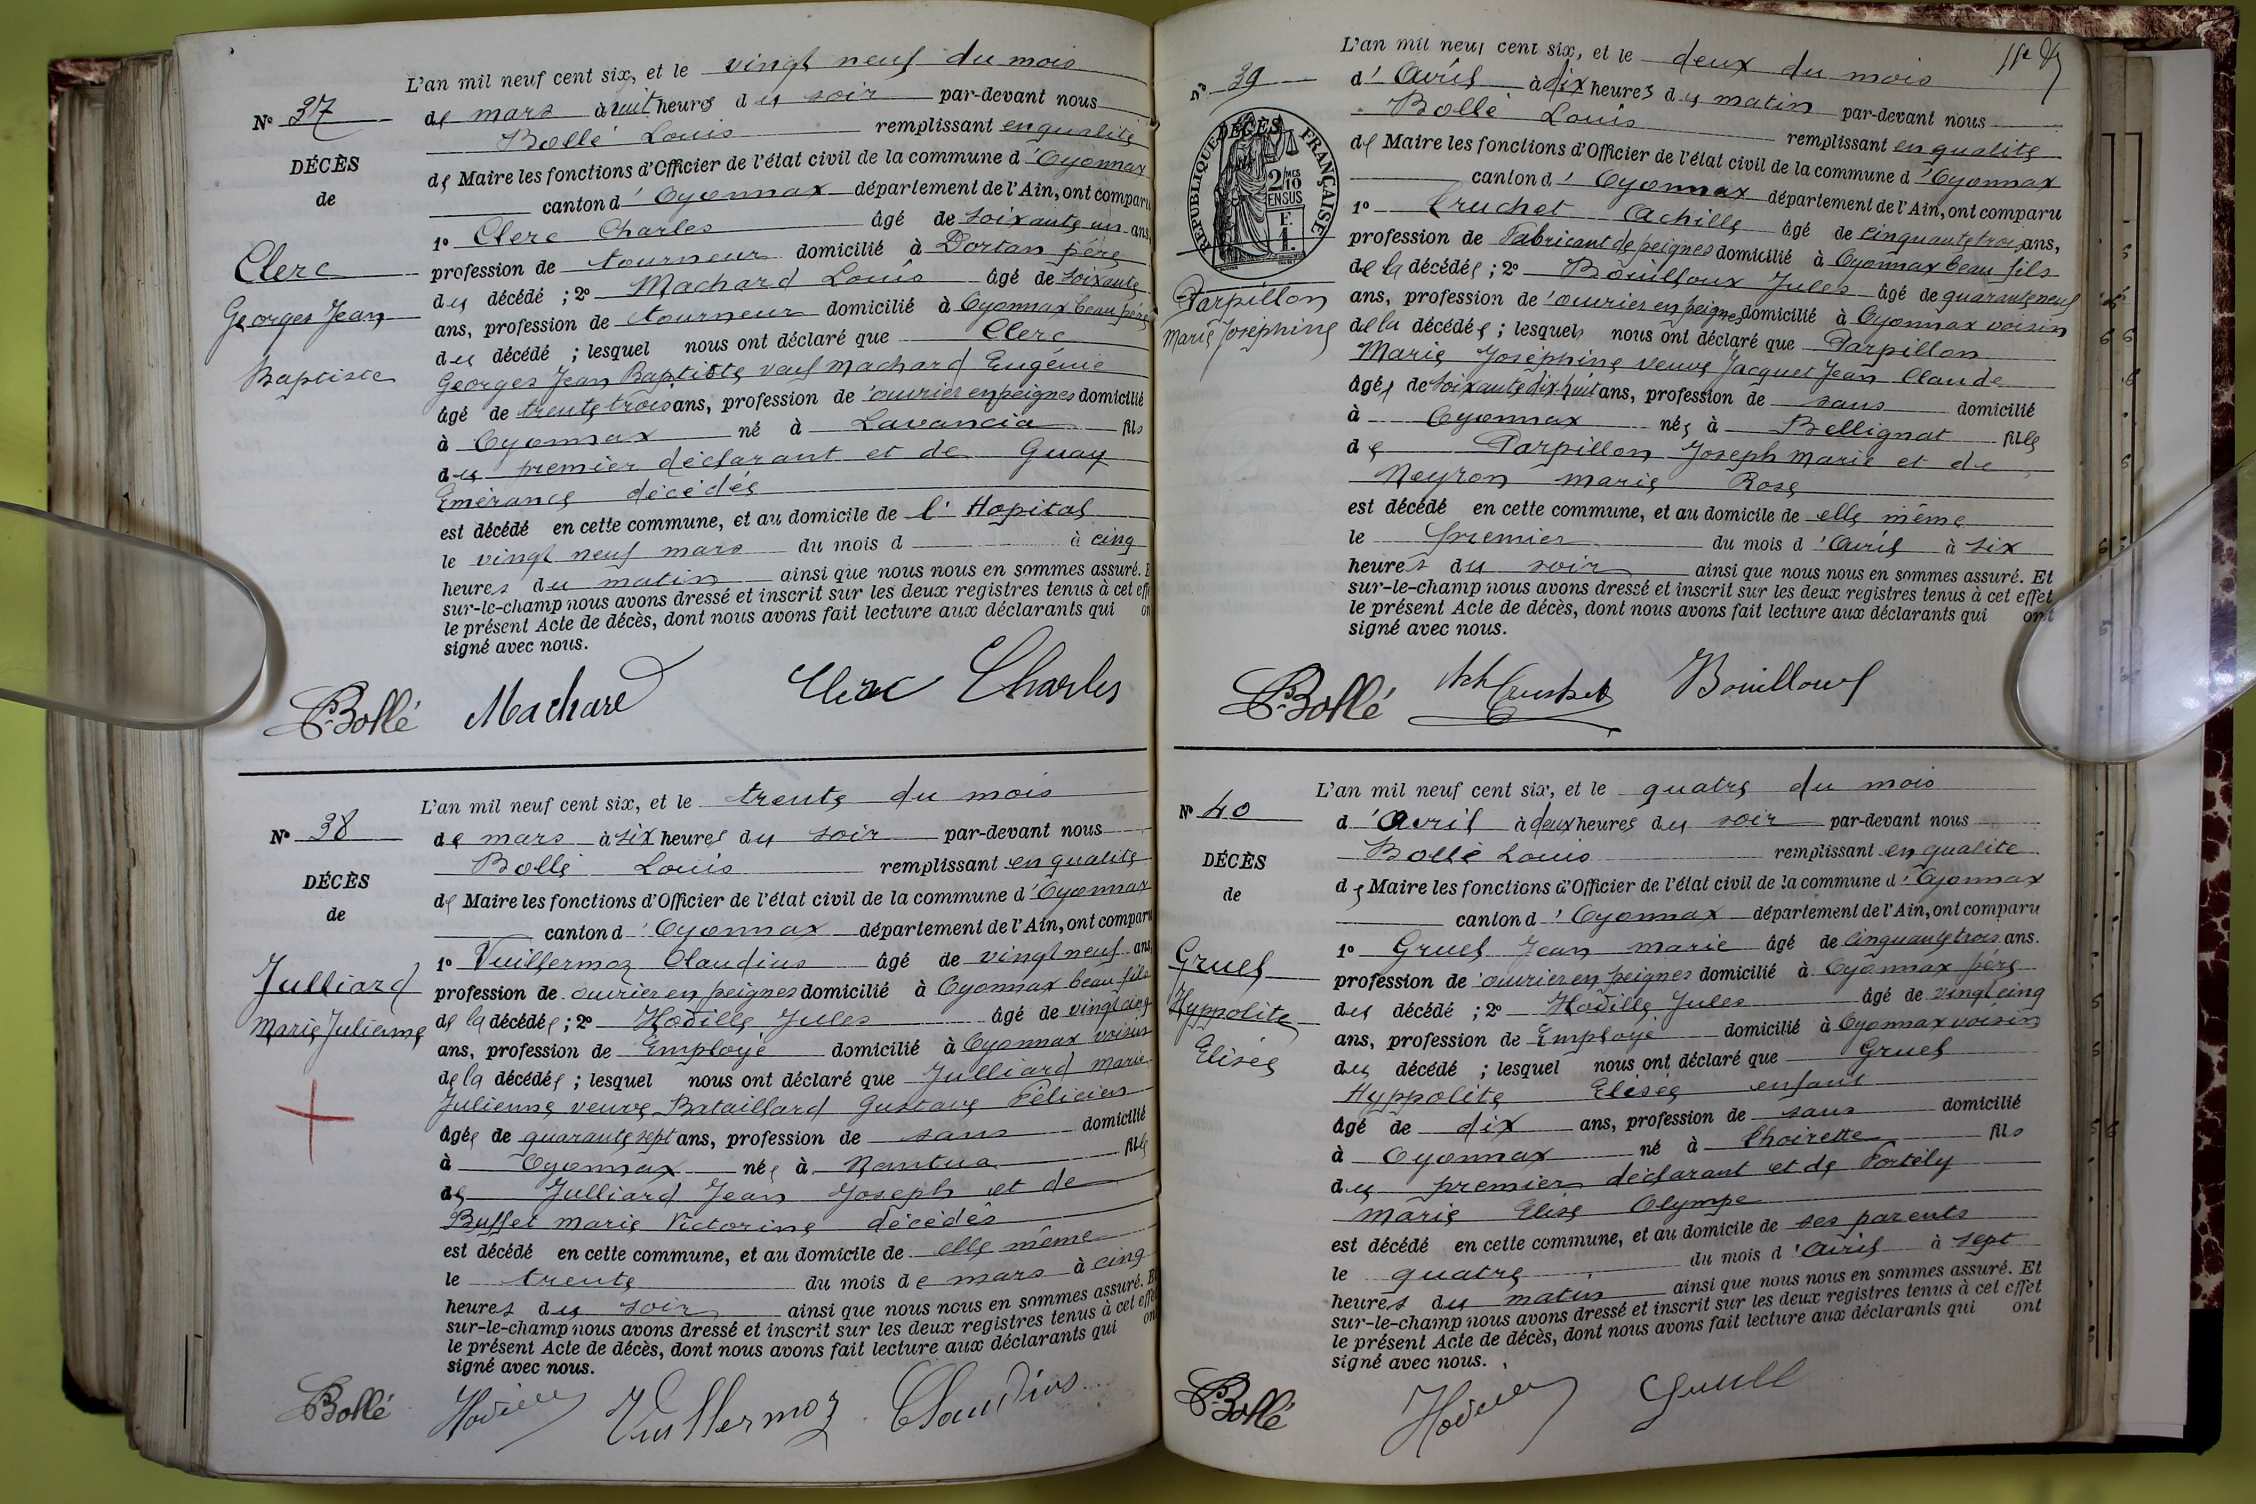 L'an mil neuf cent six, et le vingt neuf du mois
N° 37
de mars à huit heures du soir par-devant nous
Bollé Louis remplissant en qualité
DÉCÈS
de Maire les fonctions d'Officier de l'état civil de la commune d'Oyonnax
de
canton d'Oyonnax département de l'Ain, ont comparu
1° Clerc Charles âgé de soixante un ans,
Clerc
profession de tourneur domicilié à Dortan père
du décédé ; 2° Machard Louis âgé de soixante
Georges Jean
ans, profession de tourneur domicilié à Oyonnax beau père
du décédé ; lesquel nous ont déclaré que Clerc
Baptiste
Georges Jean Baptiste veuf Machard Eugénie
âgé de trente trois ans, profession de ouvrier en peignes domicilié
à Oyonnax né à Lavancia fils
du premier déclarant et de Guay
Emérance décédés
est décédé en cette commune, et au domicile de l'Hopital
le vingt neuf mars du mois d à cinq
heures du matin ainsi que nous nous en sommes assuré. E
sur-le-champ nous avons dressé et inscrit sur les deux registres tenus à cet effe
le présent Acte de décès, dont nous avons fait lecture aux déclarants qui on
signé avec nous.
Bollé Machard Clerc Charles
L'an mil neuf cent six, et le trente du mois
N° 38
de mars à six heures du soir par-devant nous
Bollé Louis remplissant en qualité
DÉCÈS
de Maire les fonctions d'Officier de l'état civil de la commune d'Oyonnax
de
canton d'Oyonnax département de l'Ain, ont comparu
1° Vuillermoz Claudius âgé de vingt neuf ans,
Julliard
profession de ouvrier en peignes domicilié à Oyonnax beau fils
Marie Julienne
de la décédée ; 2° Hodille Jules âgé de vingt cinq
ans, profession de Employé domicilié à Oyonnax voisin
de la décédée ; lesquel nous ont déclaré que Julliard Marie
Julienne veuve Bataillard Gustave Félicien
âgée de quarante sept ans, profession de sans domicilié
à Oyonnax née à Nantua fille
de Julliard Jean Joseph et de
Buffet marie Victorine décédés
est décédé en cette commune, et au domicile de elle même
le trente du mois de mars à cinq
heures du soir ainsi que nous nous en sommes assuré. E
sur-le-champ nous avons dressé et inscrit sur les deux registres tenus à cet effe
le présent Acte de décès, dont nous avons fait lecture aux déclarants qui on
signé avec nous.
Bollé Hodille Vuillermoz Claudius
L'an mil neuf cent six, et le deux du mois
N° 39
d'Avril à dix heures du matin par-devant nous
Bollé Louis remplissant en qualité
DÉCÈS
RÉPUBLIQUE FRANÇAISE
2/10 MES
EN SUS
F.
1.
de Maire les fonctions d'Officier de l'état civil de la commune d'Oyonnax
canton d'Oyonnax département de l'Ain, ont comparu
1° Cruchet Achille âgé de cinquante trois ans,
profession de Fabricant de peignes domicilié à Oyonnax beau fils
de la décédée ; 2° Bouilloux Jules âgé de quarante neuf
Parpillon
ans, profession de ouvrier en peignes domicilié à Oyonnax voisin
Marie Joséphine
de la décédée ; lesquels nous ont déclaré que Parpillon
Marie Joséphine veuve Jacquet Jean Claude
âgée de soixante dix huit ans, profession de sans domicilié
à Oyonnax née à Bellignat fille
de Parpillon Joseph Marie et de
Neyron marie Rose
est décédé en cette commune, et au domicile de elle même
le premier du mois d'Avril à six
heures du soir ainsi que nous nous en sommes assuré. Et
sur-le-champ nous avons dressé et inscrit sur les deux registres tenus à cet effet
le présent Acte de décès, dont nous avons fait lecture aux déclarants qui ont
signé avec nous.
Bollé Ach Cruchet Bouilloux
L'an mil neuf cent six, et le quatre du mois
N° 40
d'Avril à deux heures du soir par-devant nous
Bollé Louis remplissant en qualité
DÉCÈS
de Maire les fonctions d'Officier de l'état civil de la commune d'Oyonnax
de
canton d'Oyonnax département de l'Ain, ont comparu
1° Gruel Jean marie âgé de cinquante trois ans.
Gruel
profession de ouvrier en peignes domicilié à Oyonnax père
Hyppolite
du décédé ; 2° Hodille Jules âgé de vingt cinq
Elisée
ans, profession de Employé domicilié à Oyonnax voisin
du décédé ; lesquel nous ont déclaré que Gruel
Hyppolite Elisée enfant
âgé de dix ans, profession de sans domicilié
à Oyonnax né à Thoirette fils
du premier déclarant et de Portély
Marie Elise Olympe
est décédé en cette commune, et au domicile de ses parents
le quatre du mois d'Avril à sept
heures du matin ainsi que nous nous en sommes assuré. Et
sur-le-champ nous avons dressé et inscrit sur les deux registres tenus à cet effet
le présent Acte de décès, dont nous avons fait lecture aux déclarants qui ont
signé avec nous.
Bollé Hodille Gruel